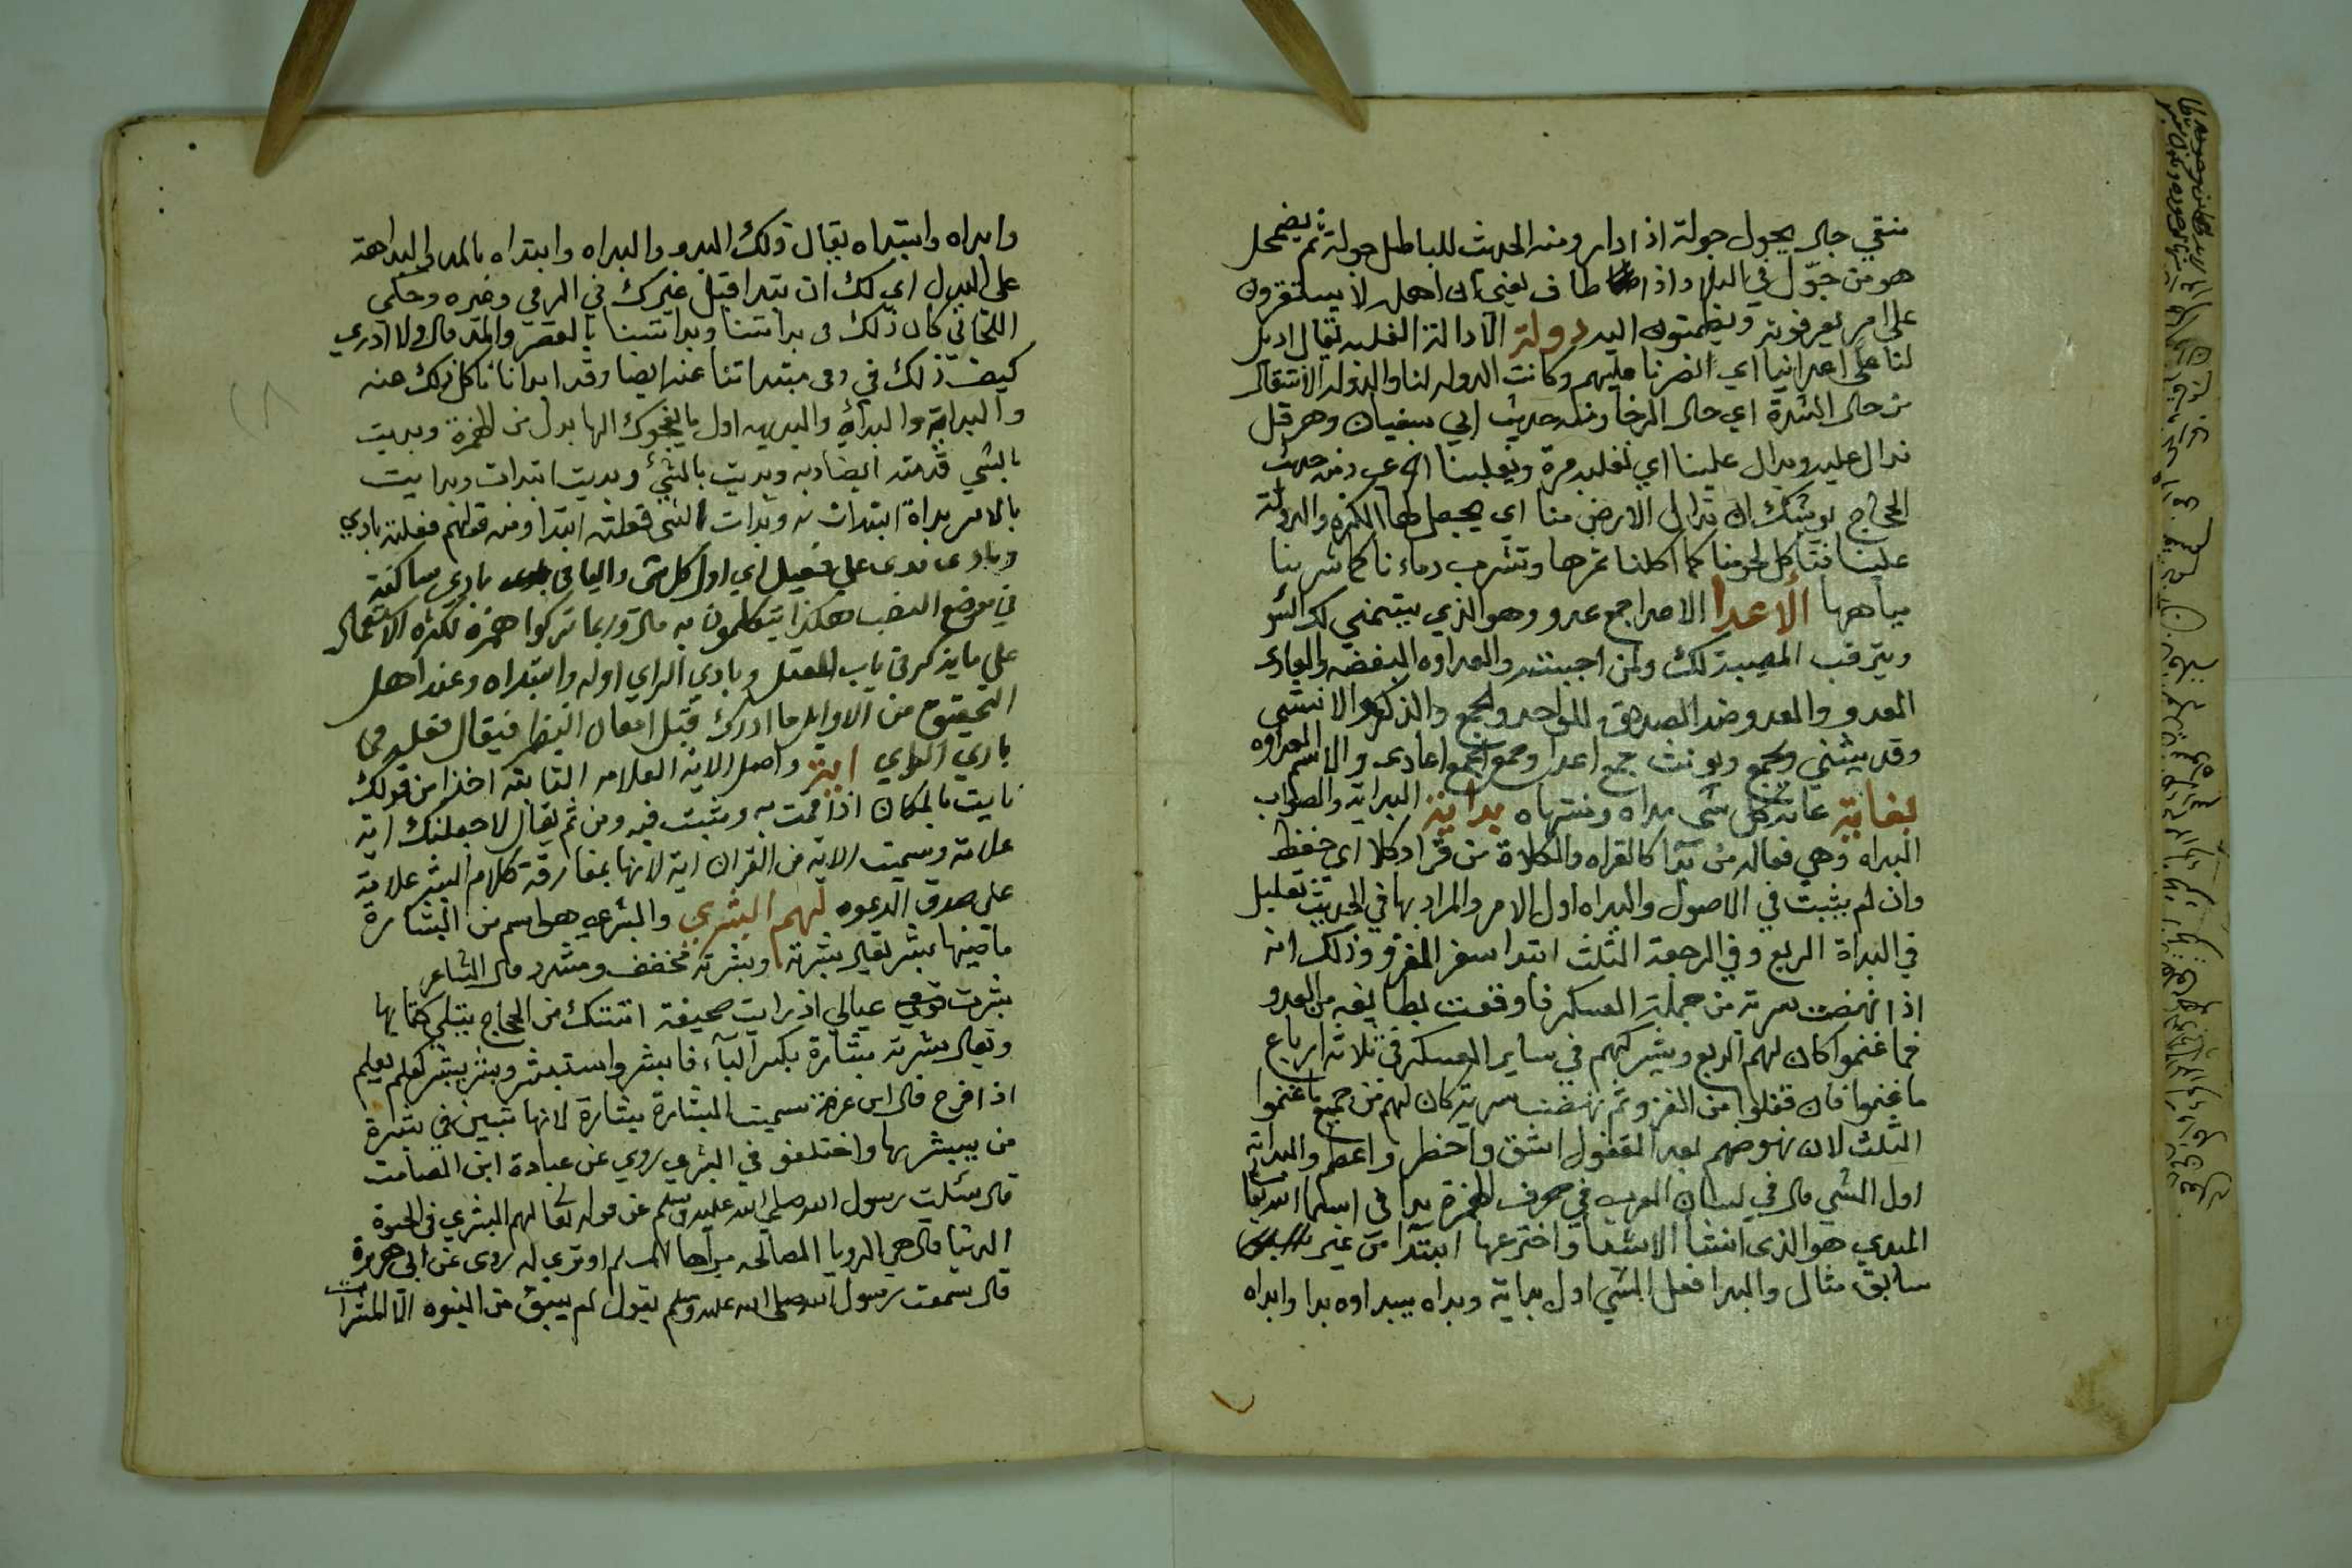 منقي جال يجول جولة اذا دار ومنه الحديث للباطل جولة ثم يضمحل
هو من جوّل في البلاد اذا طاف يعني ان اهله لا يستقرون
على امر يعرفونه ويطمئنون اليه دولة الادالة الغلبه يقال اديل
لنا على اعدائنا اي نصرنا عليهم وكانت الدوله لنا والدوله الانتقال
من حال الشدة اي حال الرخا ومنه حديث ابي سفيان وهرقل
ندال عليه ويدال علينا اي نغلبه مرة ويغلبنا اخرى ومنه حديث
الحجاج يوشك ان تدال الارض منا اي يجعل لها الكره والدولة
علينا فتاكل لحومنا كما اكلنا ثمرها وتشرب دماءنا كما شربنا
مياهها الأعدا الاعدا جمع عدو وهو الذي يتمني لك الشر
ويترقب المصيبة لك ولمن احببته والعداوه البغضه والعادى
العدو والعدو ضد الصديق للواحد والجمع والذكر والانثى
وقد يثني ويجمع ويونث جمع اعدا وجمع الجمع اعادى والاسم العداوه
لغاية غاية كل شى مداه ومنتهاه بداية البداية والصواب
البداه وهي فعاله من بدا كالقراه والكلاة من قرا وكلا اي حفظ
وان لم يثبت في الاصول والبداه اول الامر والمراد بها في الحديث تعليل
في البداة الربع وفي الرجعة الثلث ابتدا سفر الغزو وذلك انه
اذا نهضت سرية من جملة العسكر فاوقعت بطايفه من العدو
فما غنموا كان لهم الربع ويشركهم في ساير العسكر في ثلاثه ارباع
ما غنموا فان قفلوا من الغزو ثم نهضت سرية كان لهم من جميع ما غنموا
الثلث لان نهوضهم بعد القفول اشق واخطر واعظم والبداية
اول الشي قال في لسان العرب في حرف الهمزة بدا في اسما الله تعالى
المبدي هو الذى انشا الاشيا واخترعها ابتدا من غير
سابق مثال والبدا فعل الشي اول بداية وبداه يبداوه بدا وابداه
وابداه وابتداه يقال ذلك البدو والبداه وابتداه بالمد والبداهة
على البدل اي لك ان تبدا قبل غيرك في الرمي وغيره وحكي
اللحياني كان ذلك في بداتنا وبداتنا بالقصر والمد قال ولا ادري
كيف ذلك في وفي مبتداتنا عنه ايضا وقد ابدانا كل ذلك عنه
والبداية والبداة والبديهه اول ما يفجوك الها بدل من الهمزة وبديت
بالشي قدمته ايضا وبديت بالشئ وبديت ابتدات وبدايت
بالامر بداة ابتدات به وبدات الشي فعلته ابتدا ومنه قولهم فعلته بادي
وبادى بدى على فعيل اي اول كل شى واليا في بادى ساكنة
في موضع النصب هكذا يتكلمون به قال وربما تركوا همزه لكثره الاستعمال
على ما يذكر في باب المعتل وبادي الراي اوله وابتداه وعند اهل
التحقيق من الاوايل ما ادرك قبل امعان النظر فيقال فعله في
بادي الراي اية واصل الاية العلامه الثابته اخذا من قولك
تاييت بالمكان اذا اقمت به وثبت فيه ومن ثم يقال لاجعلنك اية
علامة وسميت الاية من القران اية لانها بمفارقة كلام البشر علامة
على صدق الدعوه لهم البشري والبشري هو اسم من البشارة
ماضيها بشر يقال بشرته وبشرته مخفف ومشدد قال الشاعر
بشرت عيالي اذ رايت صحيفة اتتك من الحجاج يتلي كتابها
ويقال بشرته بشارة بكسر الباء فابشر واستبشر وبشر يبشر كعلم يعلم
اذا فرح قال ابن عرفة سميت البشارة بشارة لانها تبين في بشرة
من يبشر بها واختلفو في البشرى روي عن عبادة ابن الصامت
قال سئلت رسول الله صلى الله عليه وسلم عن قوله تعالى لهم البشرى في الحيوة
الدنيا قال هي الرويا الصالحه يراها المسلم او ترى له روى عن ابى هريرة
قال سمعت رسول الله صلى الله عليه وسلم يقول لم يبق من النبوه الا المبشرات